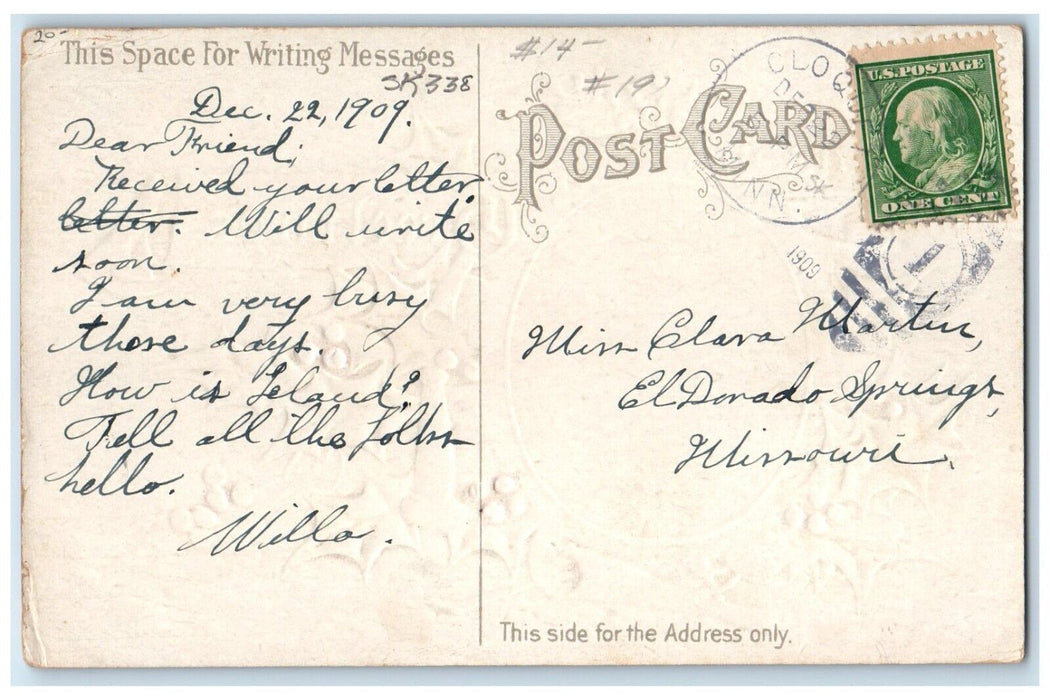 20-
This Space For Writing Messages
SK338
Dec. 22, 1909.
Dear Friend;
Received your letter
letter. Will write
soon.
I am very busy
these days.
How is Leland?
Tell all the folks
hello.
Willa.
#14-
#19
POST CARD
CLOQU
DEC
MINN.
1909
U.S. POSTAGE
ONE CENT
1
Miss Clara Martin,
El Dorado Springs,
Missouri.
This side for the Address only.